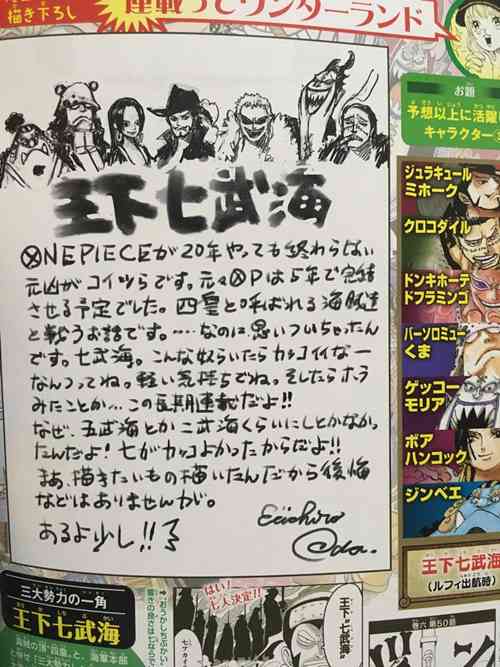 描き下ろし
連載ってワンダーランド
王下七武海
ⓍNE PIECEが20年やっても終わらない
元凶がコイツらです。元々ⓍPは5年で完結
させる予定でした。四皇と呼ばれる海賊達
と戦うお話です。…なのに、思いついちゃったん
です。七武海。こんな奴らいたらカッコイイなー
なんつってね。軽い気持ちでね。そしたらホラ
みたことか…この長期連載だよ!!
なぜ、五武海とか二武海くらいにしとかなかっ
たんだよ!七がカッコよかったからだよ!!
まぁ、描きたいもの描いたんだから後悔
などはありませんがね。
あるよ少し!!
Eiichiro
Oda.
お題
予想以上に活躍
キャラクター
ジュラキュール
ミホーク
クロコダイル
ドンキホーテ
ドフラミンゴ
バーソロミュー
くま
ゲッコー
モリア
ボア
ハンコック
ジンベエ
王下七武海
(ルフィ出航時)
三大勢力の一角
王下七武海
はい!
七人決定!!
王下七武海
巻六 第50話